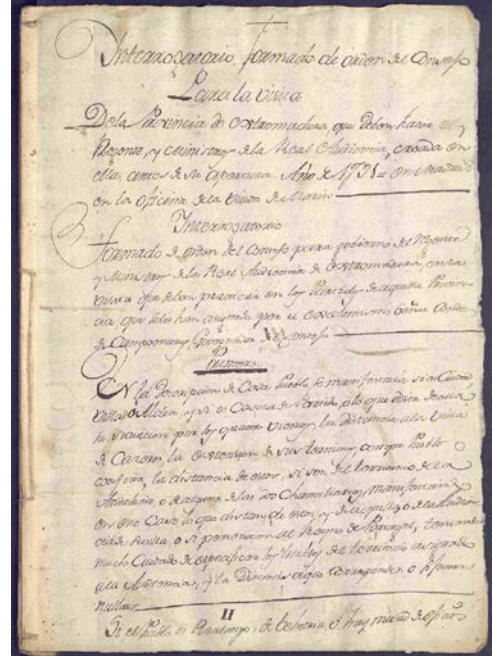 Interrogatorio formado de orden del Consejo
Para la visita
De la Provincia de Extremadura, que deben hacer el
Regente, y Ministros de la Real Audiencia, creada en
ella, antes de su apertura. Año de 1791 = en Madrid
en la oficina de la Viuda de Marin
Interrogatorio
formado de orden del Consejo para gobierno del Regente
y Ministros de la Real Audiencia de Extremadura, en la
visita que deben practicar en los Partidos de aquella Provin-
cia, que les han asignado por el Excelentisimo Señor Conde
de Campomanes Governador del Consejo
Primera
En la descripcion de Cada Pueblo se manifestará si es Ciudad
Villa o Aldea, y si es Cabeza de Partido, o lo que dista de ella,
la situacion por los quatro vientos, la distancia a la Villa
de Cazeres, la extension de sus terminos, con que Pueblo
confina, la distancia de estos, si son del territorio de la
Audiencia, o de alguna de las dos Chancillerias, manifestando
en este Caso lo que distan de estas, y de aquella, o de la Audien-
cia de Sevilla, o si pertenecen al Reyno de Portugal, teniendo
mucho Cuidado de especificar los limites del territorio asignado
a la Audiencia, y la Diocesis a que corresponde, o si fueren
nullius
II
Si el Pueblo es Realengo, de Señorio, o hay mezcla de